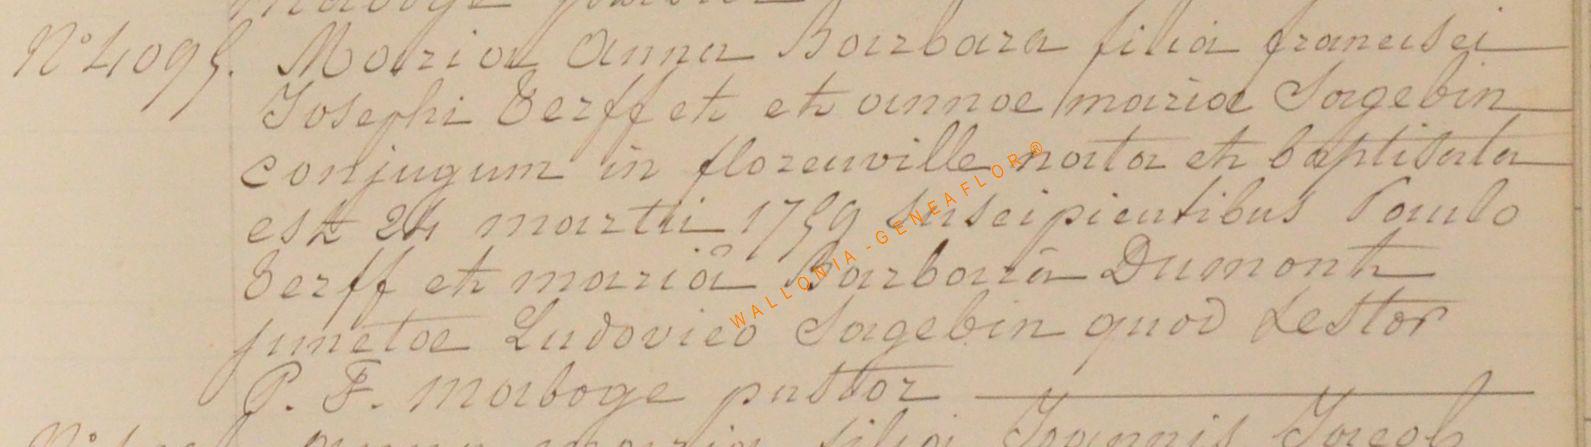 N° 4095. Maria Anna Barbara filia francisci
Josephi Terff et et annae mariae Sagebin
conjugum in florenville nata et baptisata
est 24 martii 1759 suscipientibus Paulo
Terff et mariâ Barbarâ Dumont
junctae Ludovico Sagebin quod testor
P. F. Maboge pastor
anna maria filia Joannis Joseph
WALLONIA-GENEAFLOR®